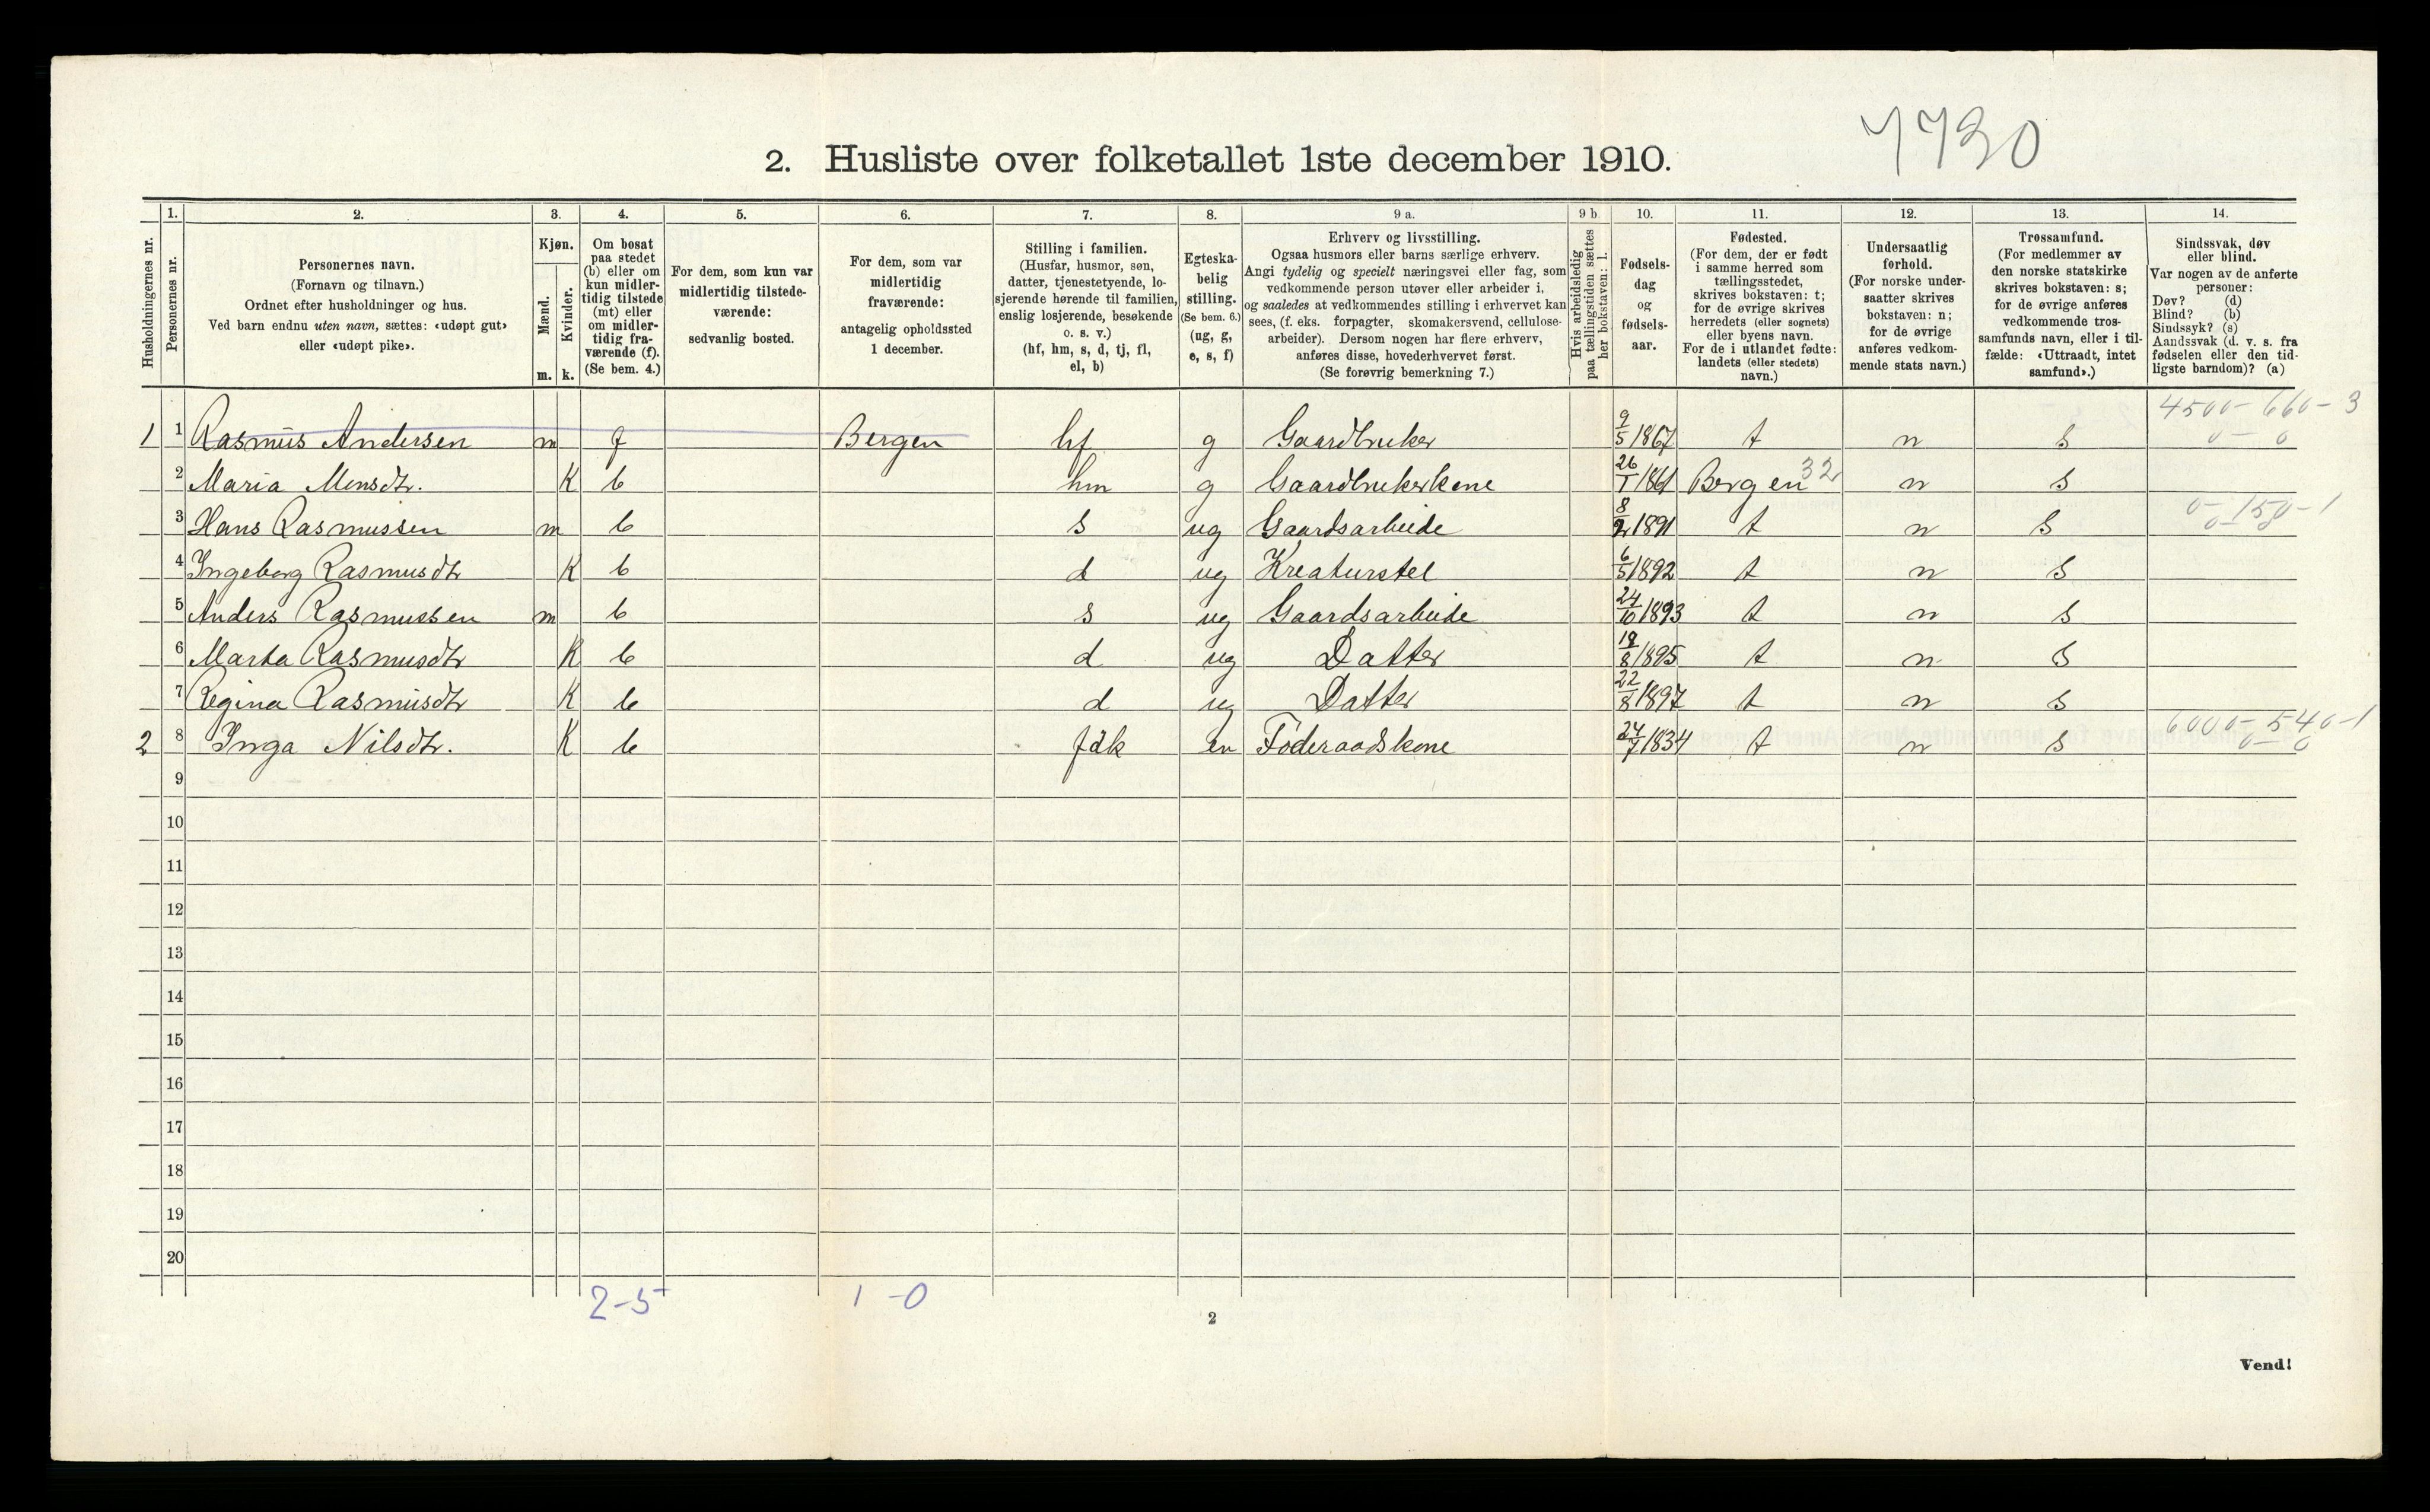 7730
2. Husliste over folketallet 1ste december 1910.
1. 2. 3. 4. 5. 6. 7. 8. 9 a. 9 b 10. 11. 12. 13. 14.
Husholdningernes nr.
Personernes nr.
Personernes navn.
(Fornavn og tilnavn.)
Ordnet efter husholdninger og hus.
Ved barn endnu uten navn, sættes: «udøpt gut»
eller «udøpt pike».
Kjøn.
Mænd.
Kvinder.
m. k.
Om bosat
paa stedet
(b) eller om
kun midler-
tidig tilstede
(mt) eller
om midler-
tidig fra-
værende (f).
(Se bem. 4.)
For dem, som kun var
midlertidig tilstede-
værende:
sedvanlig bosted.
For dem, som var
midlertidig
fraværende:
antagelig opholdssted
1 december.
Stilling i familien.
(Husfar, husmor, søn,
datter, tjenestetyende, lo-
sjerende hørende til familien,
enslig losjerende, besøkende
o. s. v.)
(hf, hm, s, d, tj, fl,
el, b)
Egteska-
belig
stilling.
(Se bem. 6.)
(ug, g,
e, s, f)
Erhverv og livsstilling.
Ogsaa husmors eller barns særlige erhverv.
Angi tydelig og specielt næringsvei eller fag, som
vedkommende person utøver eller arbeider i,
og saaledes at vedkommendes stilling i erhvervet kan
sees, (f. eks. forpagter, skomakersvend, cellulose-
arbeider). Dersom nogen har flere erhverv,
anføres disse, hovederhvervet først.
(Se forøvrig bemerkning 7.)
Hvis arbeidsledig
paa tællingstiden sættes
her bokstaven: l.
Fødsels-
dag
og
fødsels-
aar.
Fødested.
(For dem, der er født
i samme herred som
tællingsstedet,
skrives bokstaven: t;
for de øvrige skrives
herredets (eller sognets)
eller byens navn.
For de i utlandet fødte:
landets (eller stedets)
navn.)
Undersaatlig
forhold.
(For norske under-
saatter skrives
bokstaven: n;
for de øvrige
anføres vedkom-
mende stats navn.)
Trossamfund.
(For medlemmer av
den norske statskirke
skrives bokstaven: s;
for de øvrige anføres
vedkommende tros-
samfunds navn, eller i til-
fælde: «Uttraadt, intet
samfund».)
Sindssvak, døv
eller blind.
Var nogen av de anførte
personer:
Døv? (d)
Blind? (b)
Sindssyk? (s)
Aandssvak (d. v. s. fra
fødselen eller den tid-
ligste barndom)? (a)
4500-660-3
1 1 Rasmus Andersen m f Bergen hf g Gaardbruker 9/5 1867 t n s 0-0
2 Maria Monsdtr. K b hm g Gaardbrukerkone 26/1 1861 Bergen 32 n s
3 Hans Rasmussen m b s ug Gaardsarbeide 8/2 1891 t n s 0-150-1
0-0
4 Ingeborg Rasmusdtr K b d ug Kreaturstel 6/5 1892 t n s
5 Anders Rasmussen m b s ug Gaardsarbeide 24/10 1893 t n s
6 Marta Rasmusdtr K b d ug Datter 18/8 1895 t n s
7 Regina Rasmusdtr K b d ug Datter 22/8 1897 t n s
6000-540-1
2 8 Inga Nilsdtr. K b fdk en Føderaadskone 24/7 1834 t n s 0-0
9
10
11
12
13
14
15
16
17
18
19
20
2-5 1-0
2
Vend!